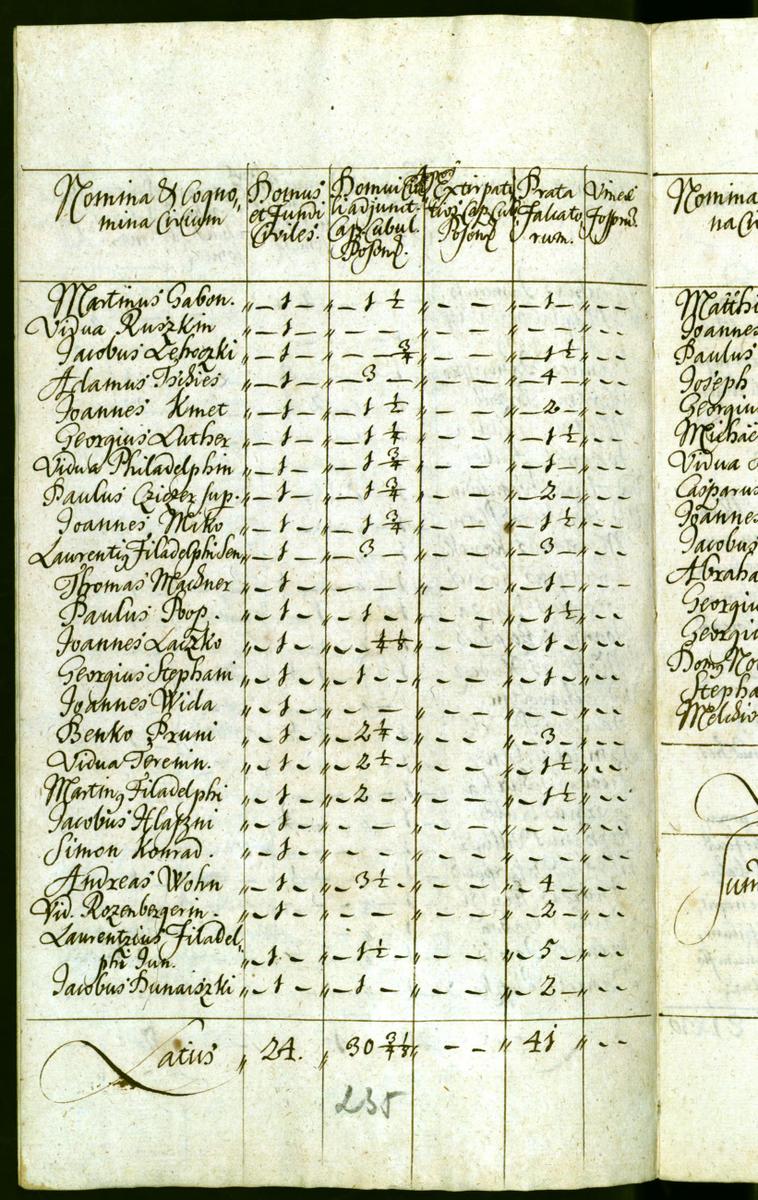 Nomina & Cogno„
mina Civium
Domus
et Fundi
Civiles.
adjunct.
Cap. Cubul.
Poson.
Extirpati
Cap. Cub.
Poson.
Prata
Falcato
rum.
Vineæ
Fossorum.
Martinus Gabon. „ – 1 – „ – 1 ½ „ – – „ – 1 – „ – –
Vidua Ruszkin „ – 1 – „ – – „ – – „ – – „ – –
Jacobus „ – 1 – „ – – ¾ „ – – „ – 1 ½ „ – –
Adamus „ – 1 – „ – 3 – „ – – „ – 4 – „ – –
Joannes Kmet „ – 1 – „ – 1 ½ „ – – „ – 2 – „ – –
Georgius Luther „ – 1 – „ – 1 ¼ „ – – „ – 1 ½ „ – –
Vidua Philadelphin „ – 1 – „ – 1 ¾ „ – – „ – 1 – „ – –
Paulus Czigler sup. „ – 1 – „ – 1 ¾ „ – – „ – 2 – „ – –
Joannes Miko „ – 1 – „ – 1 ¾ „ – – „ – 1 ½ „ – –
Laurentig Filadelphi Sen „ – 1 – „ – 3 – „ – – „ – 3 – „ – –
Thomas Machner „ – 1 – „ – – „ – – „ – 1 – „ – –
Paulus Poop. „ – 1 – „ – 1 – „ – – „ – 1 ½ „ – –
Joannes Laczko „ – 1 – „ – – ¼ ⅛ „ – – „ – 1 – „ – –
Georgius Stephani „ – 1 – „ – 1 – „ – – „ – 1 – „ – –
Joannes Wida „ – 1 – „ – – „ – – „ – – „ – –
Benko Pruni „ – 1 – „ – 2 ¼ – „ – – „ – 3 – „ – –
Vidua Terenin. „ – 1 – „ – 2 ½ – „ – – „ – 1 ½ „ – –
Marting Filadelphi „ – 1 – „ – 2 – „ – – „ – 1 ½ „ – –
Jacobus Hlaszni „ – 1 – „ – – „ – – „ – – „ – –
Simon Konrad. „ – 1 – „ – – „ – – „ – – „ – –
Andreas Wohn „ – 1 – „ – 3 ½ – „ – – „ – 4 – „ – –
Vid. Rozenbergerin. „ – 1 – „ – – „ – – „ – 2 – „ – –
Laurentius Filadel„
phi Jun. „ – 1 – „ – 1 ½ – „ – – „ – 5 – „ – –
Jacobus Dunaiszki „ – 1 – „ – 1 – „ – – „ – 2 – „ – –
Latus „ 24. „ 30 ¾ ⅛ „ – – „ 41 „ – –
235
Nomina
na Ci
Matthi
Joannes
Paulus
Joseph
Georgiu
Michae
Vidua
Casparus
Joannes
Jacobus
Abraha
Georgiu
Georgiu
Stepha
Melchio
Sum